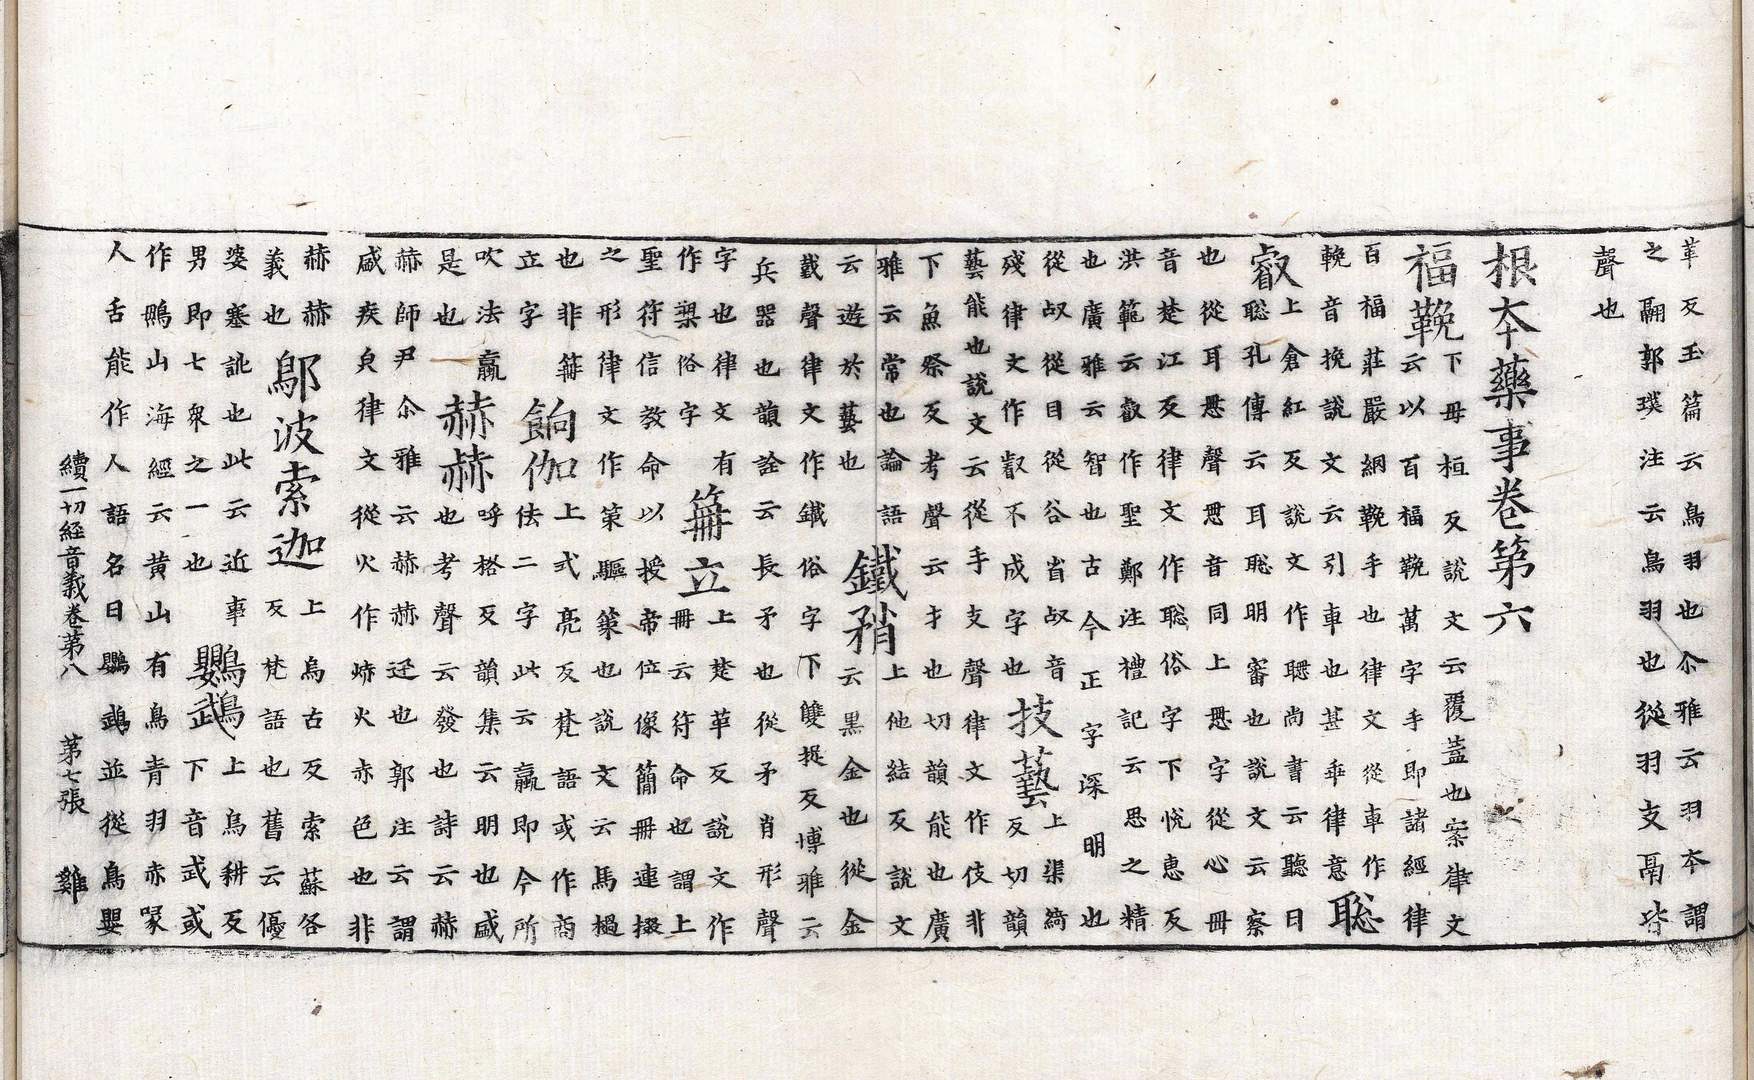 革反玉篇云鳥羽也尒雅云羽夲謂
之翮郭璞注云鳥羽也從羽支鬲皆
聲也
根夲藥事卷第六
福鞔下母桓反說文云覆蓋也案律文
云以百福鞔萬字手即諸經律
百福莊嚴網鞔手也律文從車作
輓音挽說文云引車也甚乖律意聡
叡上倉紅反說文作聰尚書云聽曰
聡孔傳云耳聡明審也說文云察
也從耳怱聲怱音同上怱字從心囪
音楚江反律文作聡俗字下悅惠反
洪範云叡作聖鄭注禮記云思之精
也廣雅云智也古今正字深明也
從𣦼從目從谷省𣦼音
殘律文作叡不成字也技藝上渠綺反切韻
藝能也說文云從手支聲律文作伎非
下魚祭反考聲云才也切韻能也廣
雅云常也論語
云遊於藝也鐵矟上他結反說文云黑金也從金
𢧜聲律文作鐵俗字下雙捉反博雅云
兵器也韻詮云長矛也從矛肖形聲
字也律文有
作槊俗字箳立上楚革反說文作冊云符命也謂上
聖符信教命以授帝位像簡冊連綴
之形律文作策驅策也說文云馬檛
也非箳
立字餉伽上式亮反梵語或作商佉二字此云蠃即今所
吹法蠃
是也赫赫呼格反韻集云明也盛也考聲云發也詩云赫
赫師尹尒雅云赫赫迅也郭注云謂
盛疾皃律文從火作焃火赤色也非
赫赫
義也鄔波索迦上烏古反索蘇各反梵語也舊云優
婆塞訛也此云近事
男即七衆之一也鸚䳇上烏耕反下音武或
作鵡山海經云黄山有鳥青羽赤喙
人舌能作人語名曰鸚䳇並從鳥嬰
續一切經音義卷第八　第七張　雞